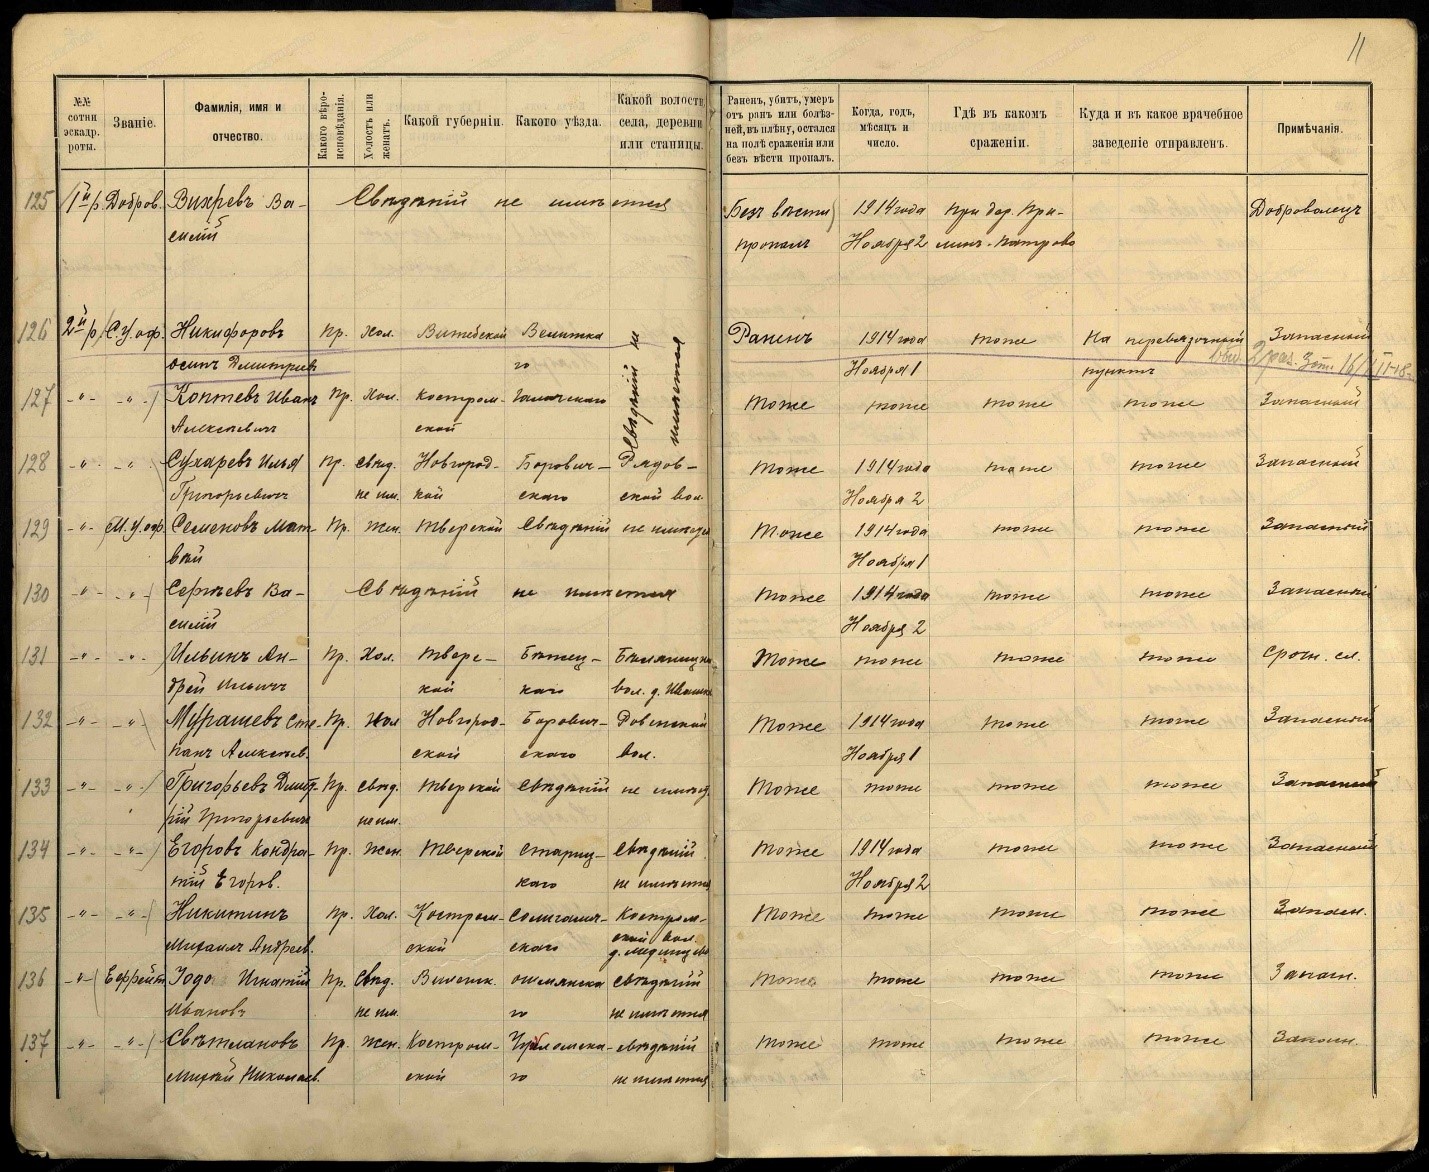 11
№№ сотни эскадр. роты.
Званіе.
Фамилія, имя и отчество.
Какого вѣро-исповѣданія.
Холостъ или женатъ.
Какой губерніи.
Какого уѣзда.
Какой волости, села, деревни или станицы.
Раненъ, убитъ, умеръ отъ ранъ или болѣз-ней, въ плѣну, остался на полѣ сраженія или безъ вѣсти пропалъ.
Когда, годъ, мѣсяцъ и число.
Гдѣ въ какомъ сраженіи.
Куда и въ какое врачебное заведеніе отправленъ.
Примѣчанія.
125 1й р. Добров. Вихревъ Ва- Свѣдѣній не имѣется Безъ вѣсти 1914 года При дер. Доброволецъ
силій пропалъ Ноября 2
126 2й р. С.У.оф. Никифоровъ Пр. Хол. Витебской Раненъ 1914 года тоже На перевязочный Запасный
Осипъ Дмитріев го Ноября 1 пунктъ
Свѣдѣній не имѣется
127 -"- -"- Коптевъ Иванъ Пр. Хол. Костром- Галичскаго тоже тоже тоже тоже Запасный
Алексѣевичъ ской
128 -"- -"- Сухаревъ Илья Пр. Свѣд. Новгород- Борович- Рядов- тоже 1914 года тоже тоже Запасный
Григорьевичъ не им. кой скаго ской вол. Ноября 2
129 -"- М.У.оф. Семеновъ Мат- Пр. Жен. Тверской Свѣдѣній не имѣется Тоже 1914 года тоже тоже Запасный
вѣй Ноября 1
130 -"- -"- Сергѣевъ Ва- Свѣдѣній не имѣется тоже 1914 года тоже тоже Запасный
силій Ноября 2
131 -"- -"- Ильинъ Ан- Пр. Хол. Твере- Бѣжец- Тоже тоже тоже тоже Срочн. сл.
дрей Ильичъ кой каго вол. д.
132 -"- -"- Мурашевъ Сте- Пр. Хол Новгород- Борович- вол. Тоже 1914 года тоже тоже Запасный
панъ Алексѣев. ской скаго Ноября 1
133 -"- -"- Григорьевъ Дмит- Пр. Свѣд. Тверской Свѣдѣній не имѣед. Тоже тоже тоже тоже Запасный
рій Григорьевичъ не им.
134 -"- -"- Егоровъ Кондра- Пр. Жен. Тверской Стариц- Свѣдѣній Тоже 1914 года тоже тоже Запасный
тій Егоров. каго не имѣется Ноября 2
135 -"- -"- Никитинъ Пр. Хол. Костром- Солигалич- Костром- Тоже тоже тоже тоже Запасн.
Михаилъ Андреев. ской скаго ской вол.
136 -"- Ефрейт. Іодо Игнатій Пр. Свѣд. Виленск. Ошмянска свѣдѣній Тоже тоже тоже тоже Запасн.
Ивановъ не им. го не имѣется
137 -"- -"- Свѣтлановъ Пр. Жен. Костром- Чухломска- свѣдѣній Тоже тоже тоже тоже Запасн.
Николаев. ской го не имѣется